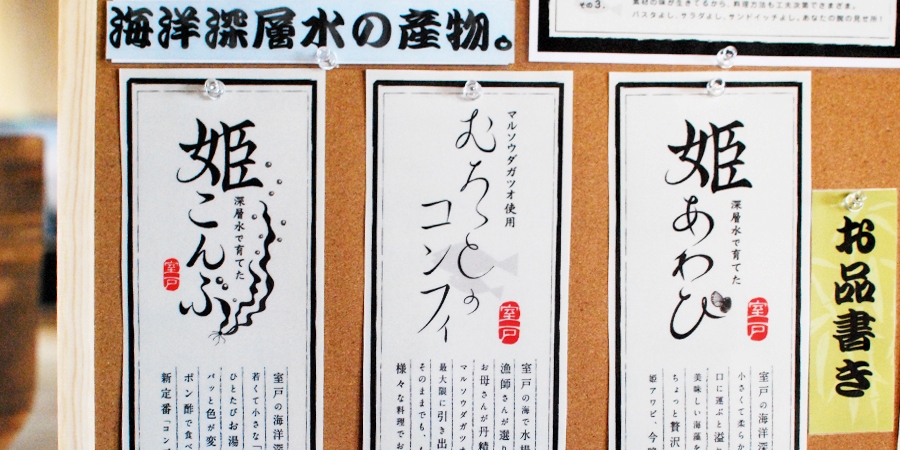 海洋深層水の産物。
その3.
素材の味が生きてるから、料理方法も工夫次第でさまざま。
パスタよし、サラダよし、サンドイッチよし、あなたの腕の見せ所！
姫
あわび
深層水で育てた
室戸
室戸の海洋深
小さくて柔らか
口に運ぶと溢
美味しい海藻を
ちょっと贅沢
姫アワビ、今
マルソウダガツオ使用
むろっとの
コンフィ
室戸
室戸の海で水揚
漁師さんが選り
お母さんが丹精
マルソウダガツオ
最大限に引き出
そのままでも、も
様々な料理でお
姫
こんぶ
深層水で育てた
室戸
室戸の海洋深
若くて小さな「
ひとたびお湯
パッと色が変
ポン酢で食べ
新定番「コンブ
お品書き